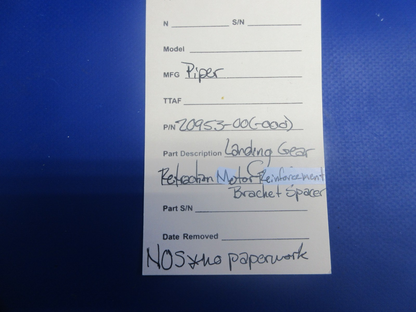 N S/N
Model
MFG Piper
TTAF
P/N 20953-00(-000)
Part Description Landing Gear
Retraction Motor Reinforcement
Bracket Spacer
Part S/N
Date Removed
NOS *no paperwork